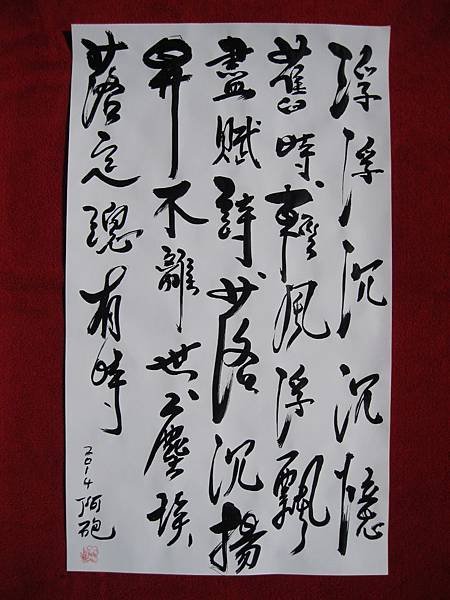 浮浮沉沉憶
舊時輕風浮飄
盡賦詩落沉揚
昇不離世塵埃
落定總有時
2014 阿砲